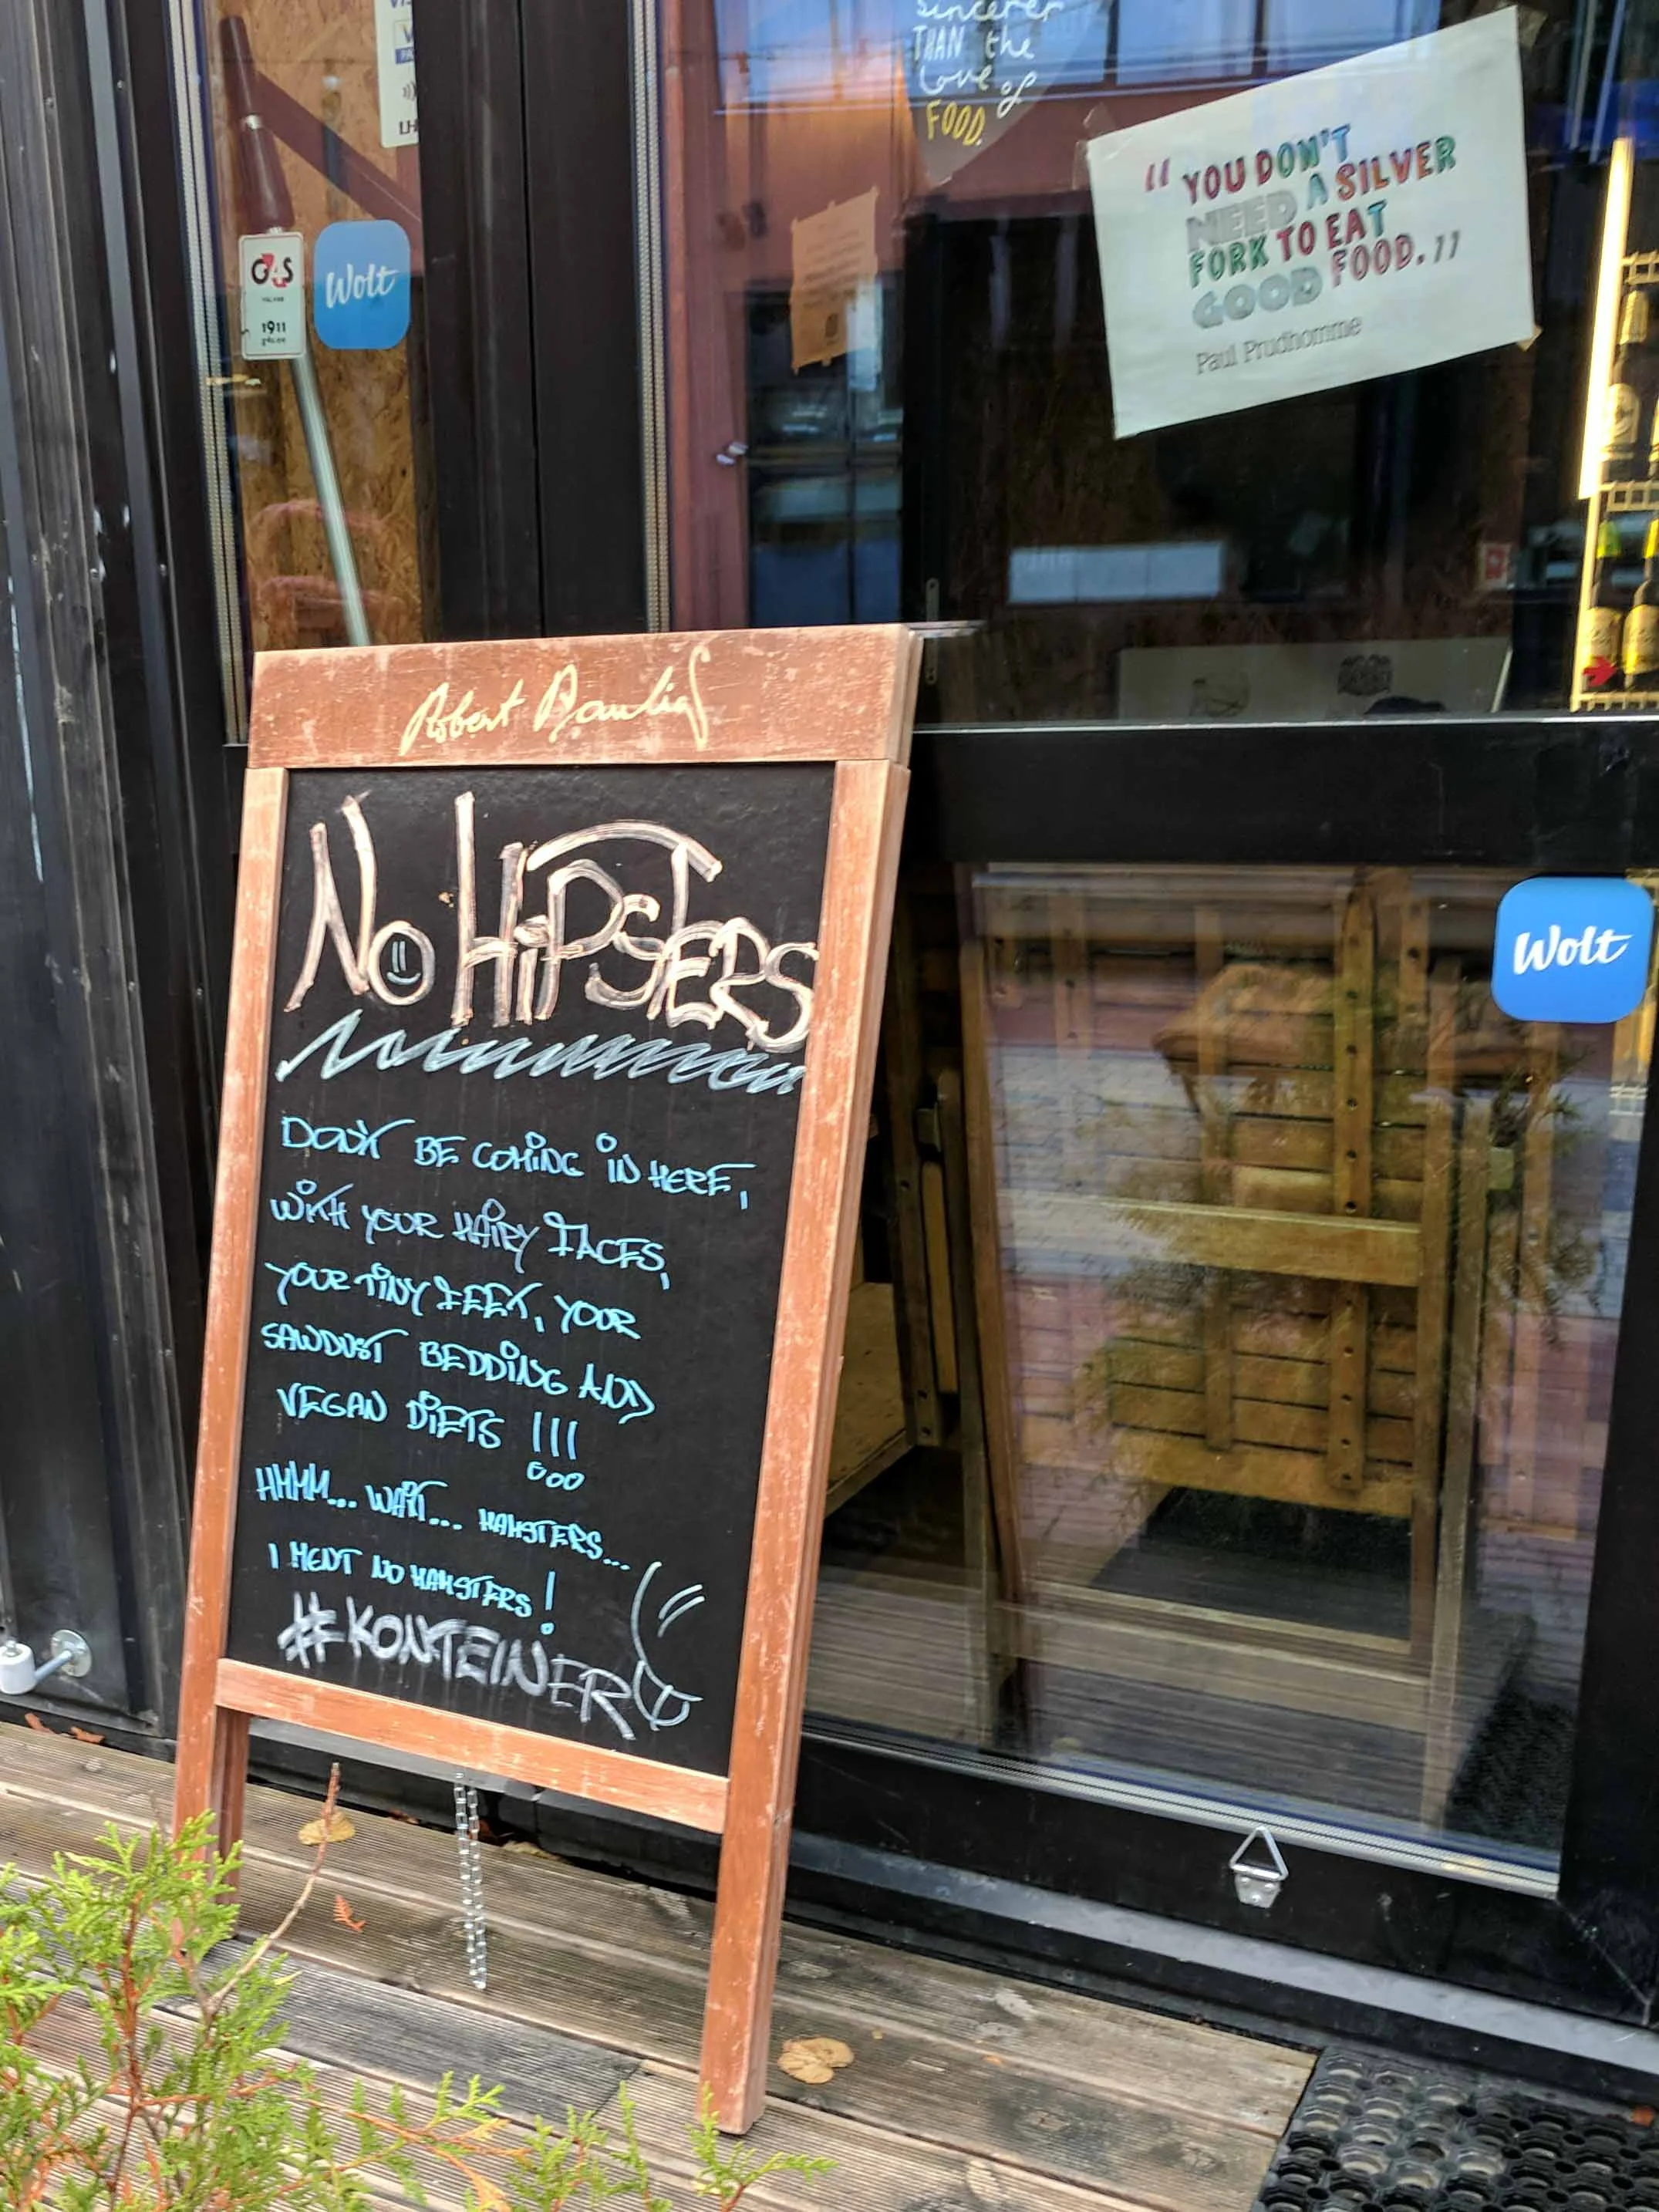 sincerer
THAN the
Love of
FOOD.
“YOU DON'T
NEED A SILVER
FORK TO EAT
GOOD FOOD.”
Paul Prudhomme
G4S
1911
Wolt
Robert Paulig
NO HiPSTERS
DON'T BE COMING IN HERE,
WITH YOUR HAIRY FACES,
YOUR TINY FEET, YOUR
SAWDUST BEDDING AND
VEGAN DIETS !!!
HMMM... WAIT... HAMSTERS...
I MENT NO HAMSTERS!
#KONTEINER
Wolt